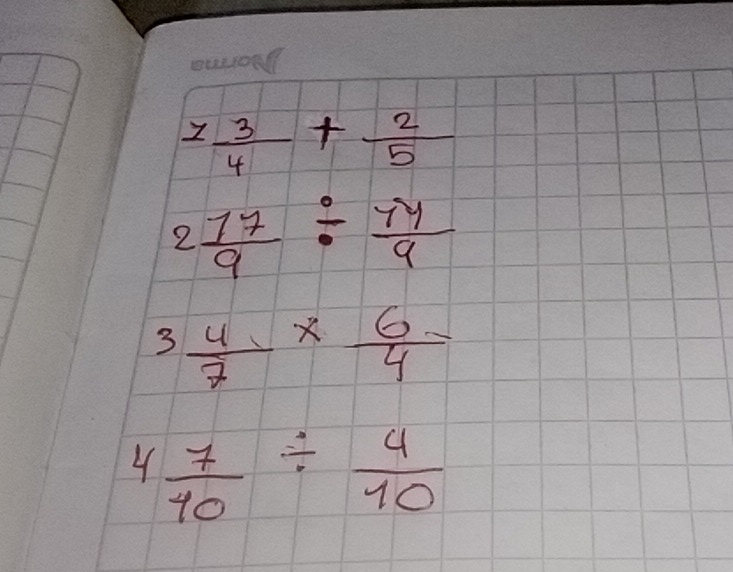 Norma
1 3/4 + 2/5
2 17/9 ÷ 14/9
3 4/7 × 6/4
4 7/10 ÷ 4/10